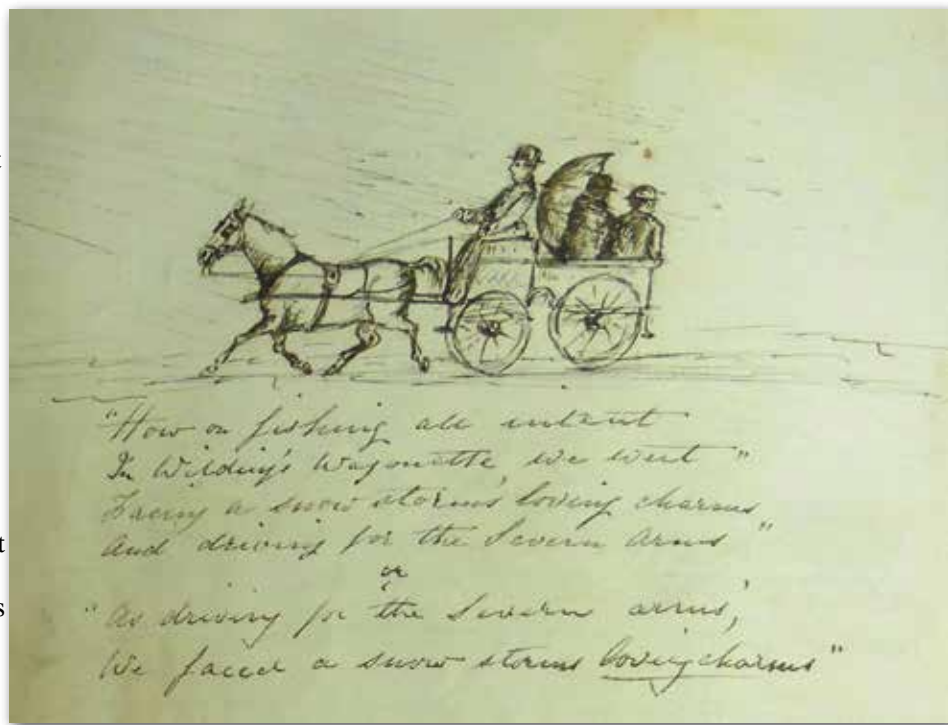 "How on fishing all intent
In Wilding's Wagonette we went"
Facing a snow storm's loving charms
And driving for the Severn Arms"
or
"As driving for the Severn arms,
We faced a snow storms loving charms"
t
s